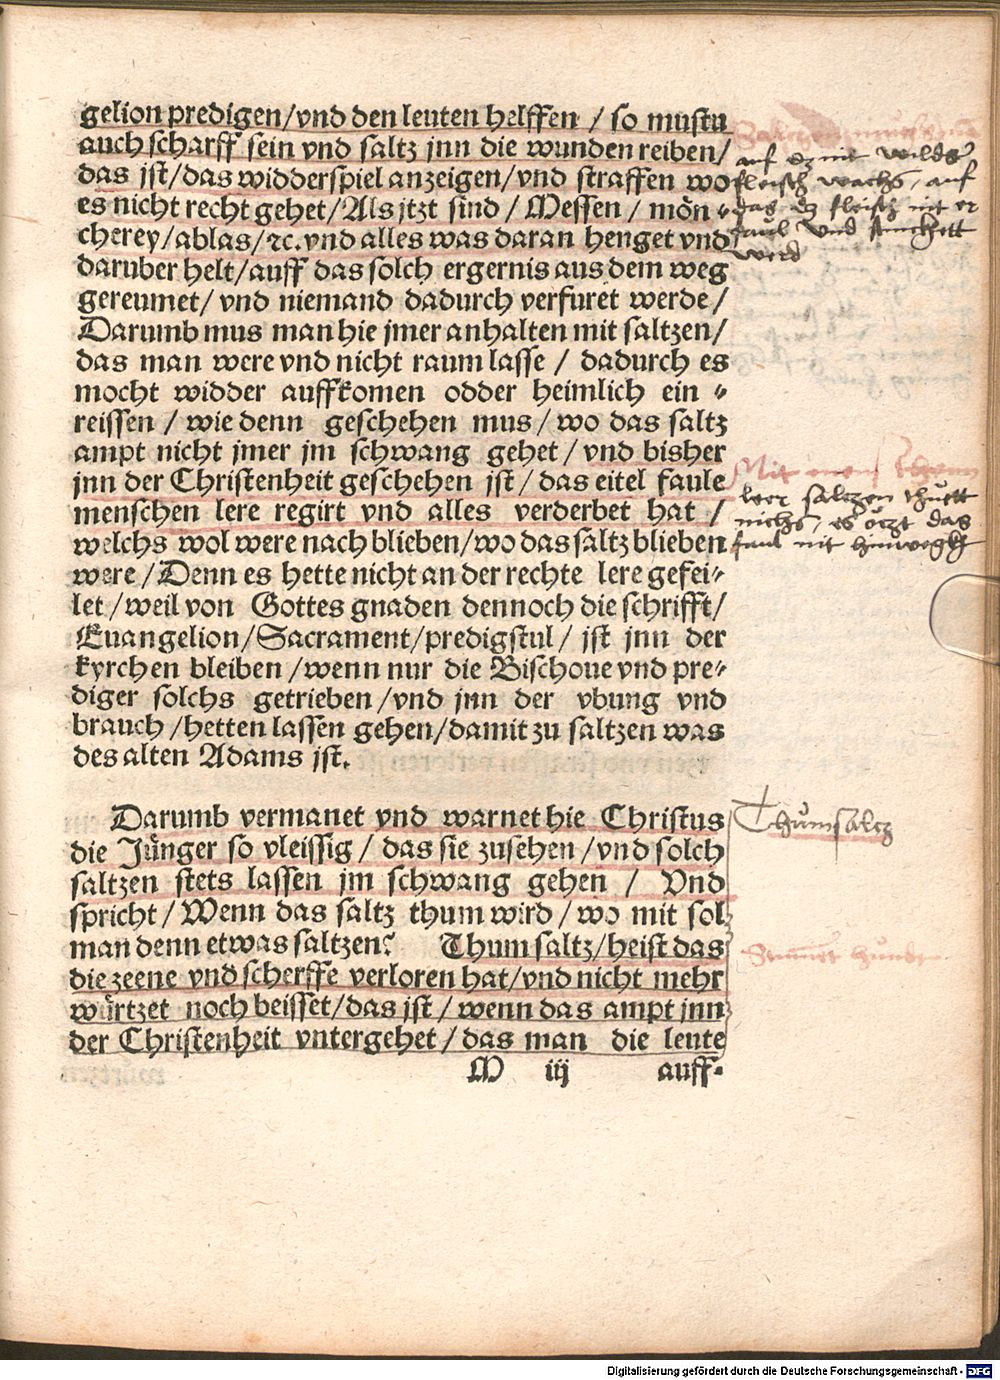 gelion predigen/vnd den leuten helffen / so mustu
auch scharff sein vnd saltz jnn die wunden reiben/
das jst/das widderspiel anzeigen/vnd straffen wo
es nicht recht gehet/Als jtzt sind / Messen / mön⸗
cherey/ablas/ꝛc.vnd alles was daran henget vnd
daruber helt/auff das solch ergernis aus dem weg
gereumet/ vnd niemand dadurch verfuret werde/
Darumb mus man hie jmer anhalten mit saltzen/
das man were vnd nicht raum lasse / dadurch es
mocht widder auffkomen odder heimlich ein⸗
reissen / wie denn geschehen mus/wo das saltz
ampt nicht jmer jm schwang gehet/vnd bisher
jnn der Christenheit geschehen jst/das eitel faule
menschen lere regirt vnd alles verderbet hat /
welchs wol were nach blieben/wo das saltz blieben
were/Denn es hette nicht an der rechte lere gefei⸗
let/weil von Gottes gnaden dennoch die schrifft/
Euangelion/Sacrament/predigstul/ jst jnn der
kyrchen bleiben/wenn nur die Bischoue vnd pre⸗
diger solchs getrieben/vnd jnn der vbung vnd
brauch/hetten lassen gehen/damit zu saltzen was
des alten Adams jst.
Darumb vermanet vnd warnet hie Christus
die Jünger so vleissig / das sie zusehen/vnd solch
saltzen stets lassen jm schwang gehen / Vnd
spricht/Wenn das saltz thum wird/wo mit sol
man denn etwas saltzen? Thum saltz/heist das
die zeene vnd scherffe verloren hat/vnd nicht mehr
würtzet noch beisset/das jst/wenn das ampt jnn
der Christenheit vntergehet/das man die leute
M iij auff⸗
auf nit wilds
fleisch wachs, auf
das fleisch nit er
faul vnd stinckett
werd
Mit
leer salczen thuett
nichs, es das
faul nit hinwegk
Thumsalcz
Stummet hundt
Digitalisierung gefördert durch die Deutsche Forschungsgemeinschaft - DFG